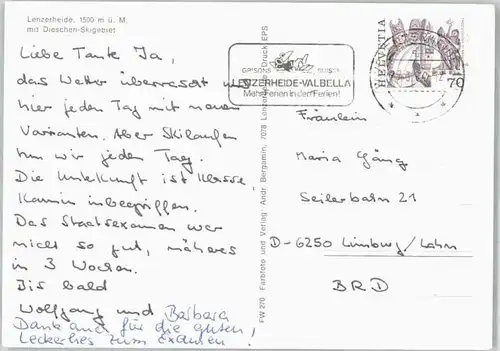 Lenzerheide. 1500 m ü. M.
mit Dieschen-Skigebiet
Liebe Tante Ja,
das Wetter überrascht uns
hier jeden Tag mit neuen
Varianten. Aber Skilaufen
tun wir jeden Tag.
Die Unterkunft ist Klasse,
Kamin inbegriffen.
Das Staatsexamen war
nicht so gut, näheres
in 3 Wochen.
Bis bald
Wolfgang und Barbara
Dank auch für die guten
Leckerlies zum Examen!
FW 270 Farbfoto und Verlag: Andr. Bergamin, 7078 Lenzerheide Druck EPS
GRISONS SUISSE
LENZERHEIDE-VALBELLA
Mehr Ferien in den Ferien!
HELVETIA
70
Fräulein
Maria Gäng
Seilerbahn 21
D-6250 Limburg/Lahn
BRD